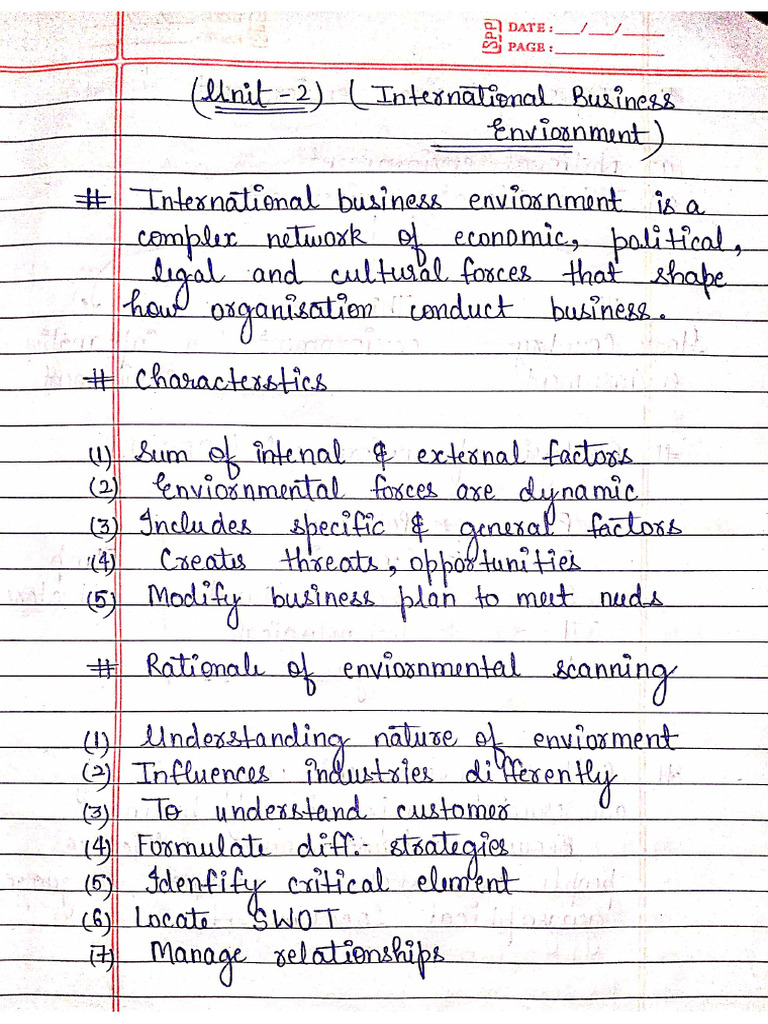 SPP DATE: __/__/____
PAGE: __________
(Unit-2) (International Business
Enviornment)
# International business enviornment is a
complex network of economic, political,
legal and cultural forces that shape
how organisation conduct business.
# Characterstics
(1) Sum of intenal & external factors
(2) Enviornmental forces are dynamic
(3) Includes specific & general factors
(4) Creates threats, opportunities
(5) Modify business plan to meet needs
# Rationale of enviornmental scanning
(1) Understanding nature of enviorment
(2) Influences industries differently
(3) To understand customer
(4) Formulate diff. strategies
(5) Idenfify critical element
(6) Locate SWOT
(7) Manage relationships